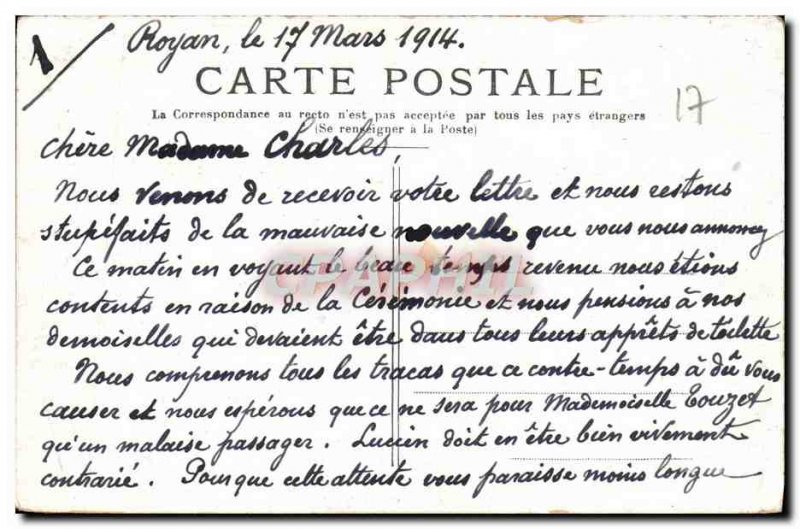 1
Royan, le 17 Mars 1914.
CARTE POSTALE
La Correspondance au recto n'est pas acceptée par tous les pays étrangers
(Se renseigner à la Poste)
17
Chère Madame Charles,
Nous venons de recevoir votre lettre et nous restons
stupéfaits de la mauvaise nouvelle que vous nous annoncez
Ce matin en voyant le beau temps revenu nous étions
contents en raison de la Cérémonie et nous pensions à nos
demoiselles qui devaient être dans tous leurs apprêts de toilette
Nous comprenons tous les tracas que ce contre-temps à dû vous
causer et nous espérons que ce ne sera pour Mademoiselle Touzet
qu'un malaise passager. Lucien doit en être bien vivement
contrarié. Pour que cette attente vous paraisse moins longue